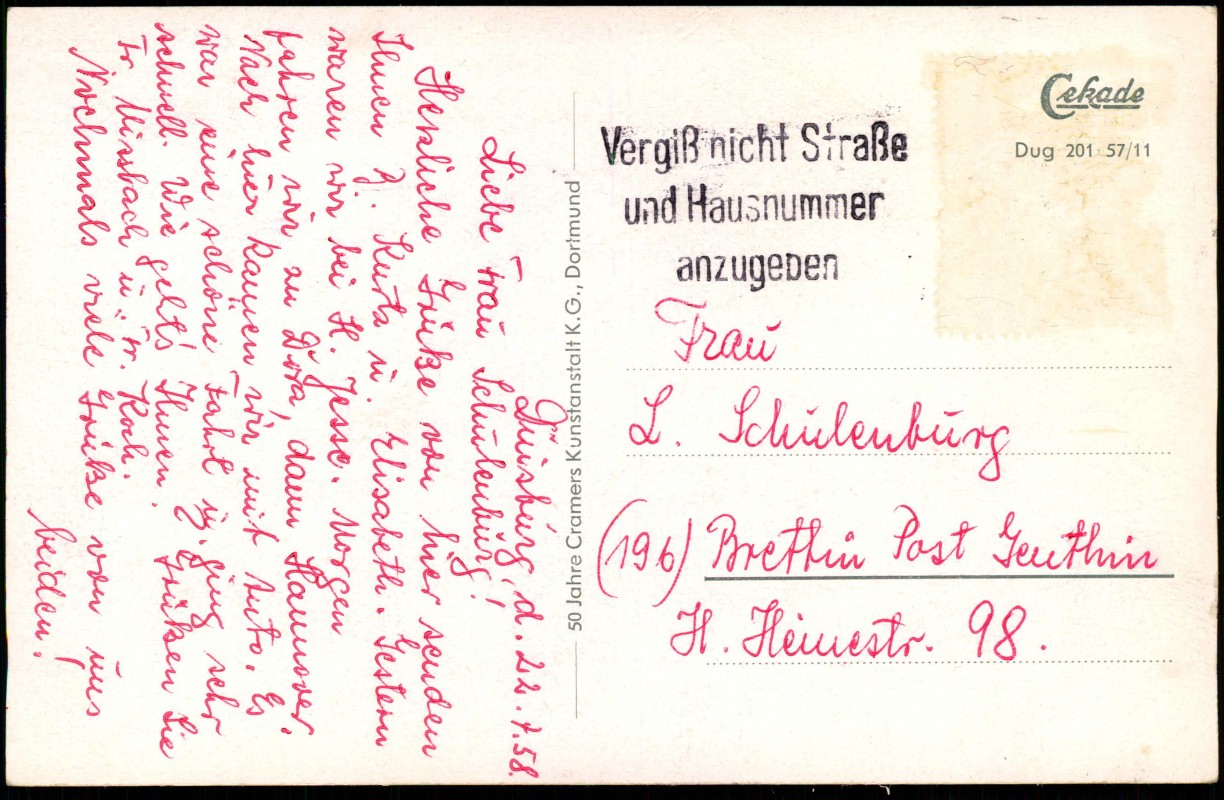 Duisburg, d. 22.7.58.
Liebe Frau Schulenburg!
Herzliche Grüße von hier senden
Ihnen J. Kurts u. Elisabeth. Gestern
waren wir bei H. Jesse. Morgen
fahren wir zu Dora, dann Hannover.
Nach hier kamen wir mit Auto. Es
war eine schöne Fahrt u. ging sehr
schnell. Wie geht's Ihnen? Grüßen Sie
Fr. u. Fr. Koch.
Nochmals viele Grüße von uns
beiden!
50 Jahre Cramers Kunstanstalt K.G., Dortmund
Vergiß nicht Straße
und Hausnummer
anzugeben
Cekade
Dug 201 57/11
Frau
L. Schulenburg
(19b) Brettin Post Genthin
H. Heinestr. 98.